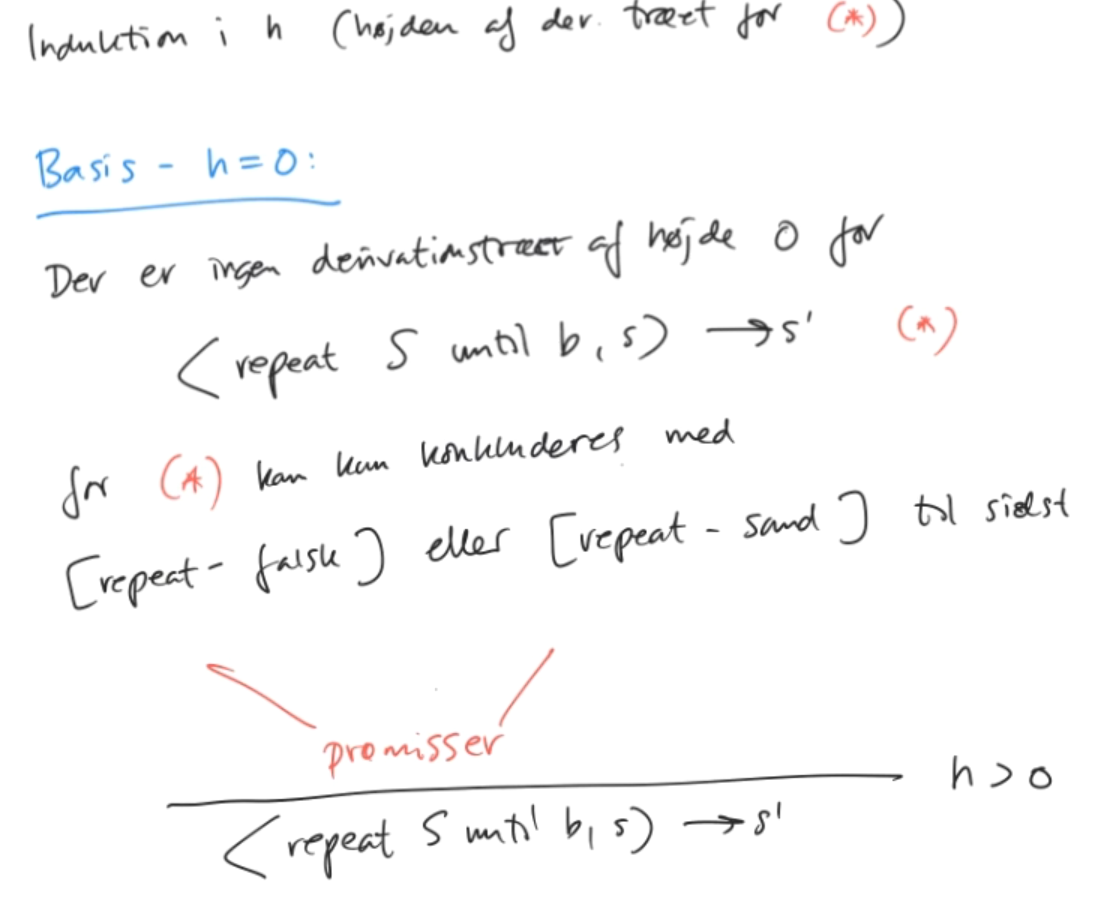 Induktion i h (højden af der. træet for (*))
Basis - h=0:
Der er ingen derivationstræet af højde 0 for
<repeat S until b, s) → s' (*)
for (*) kan kun konkluderes med
[repeat-falsk] eller [repeat-sand] til sidst
promisser
h > 0
<repeat S until b, s) → s'